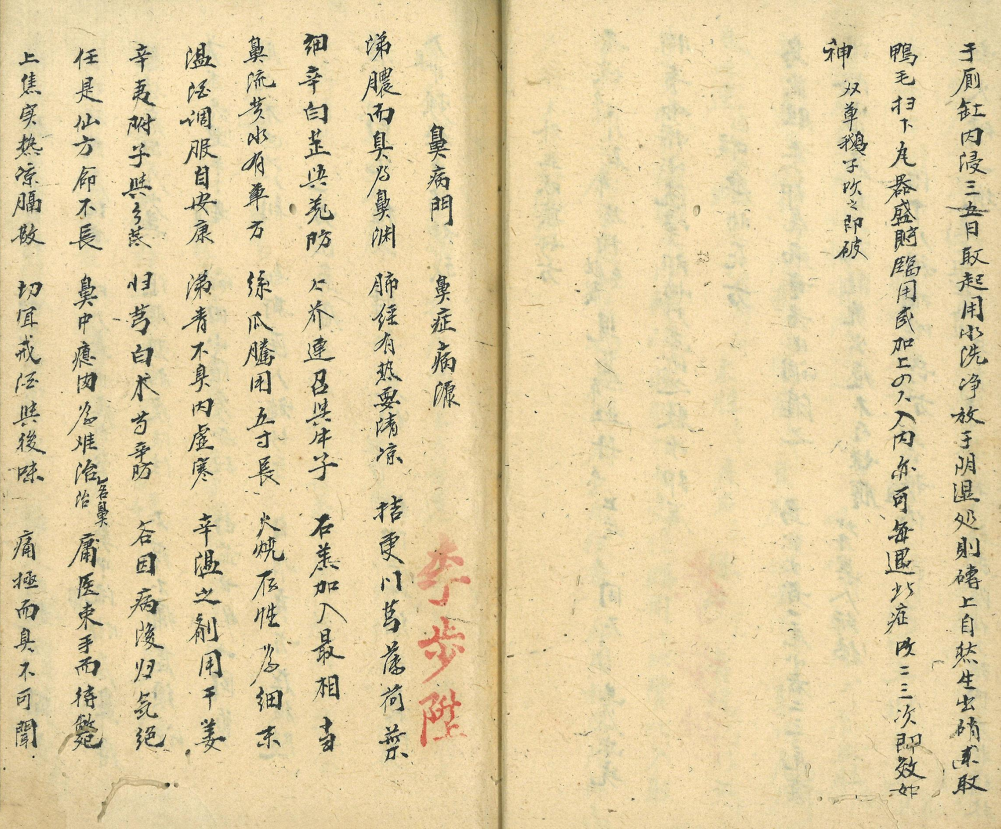 于厠缸内浸三五日取起用水洗净放于阴湿处則磚上自然生出硝来取
鴨毛扫下瓦器盛貯臨用或加上の人入内亦可每遇此症吹二三次即效如
神 双单鵝子吹之即破
鼻病門 鼻症病源
涕膿而臭为鼻渊 肺経有热要清凉 桔更川芎薄荷葉
細辛白芷與荒防 仌芥連召與朩子 石羔加入最相当
鼻流黄水有单方 絲瓜騰用五寸長 火燒存性为細末
温酒调服自安康 涕青不臭内虚寒 辛温之劑用干姜
辛夷附子與 归芎白朮芍辛防 各因病後归気絕
任是仙方命不長 鼻中瘜肉为难治 名鼻痔 庸医束手而待斃
上焦实热凉膈散 切宜戒酒與後味 痛極而臭不可聞
李步陞